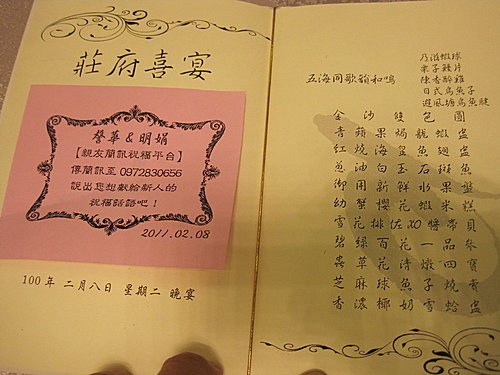 莊府喜宴
馨華&明娟
【親友簡訊祝福平台】
傳簡訊至0972830656
說出您想獻給新人的
祝福話語吧！
2011.02.08
100年 二月八日 星期二 晚宴
乃滋蝦球
栗子鰻片
陳香醉雞
日式烏魚子
避風塘烏魚鰾
五海同歌韻和鳴
金沙雙色圓
青蘋果焗龍蝦盅
紅燒海皇魚翅盅
蔥油白玉石斑魚
御用新鮮水果盤
幼蟹櫻花蝦米糕
雪花排佐XO醬帶貝
碧綠百花一品參
蟲草花清燉四寶
芝麻球魚子燒賣
香濃椰奶雪蛤盅